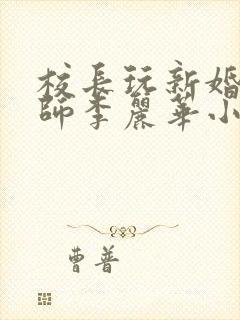 校長玩新婚
師李麗華小
曹普